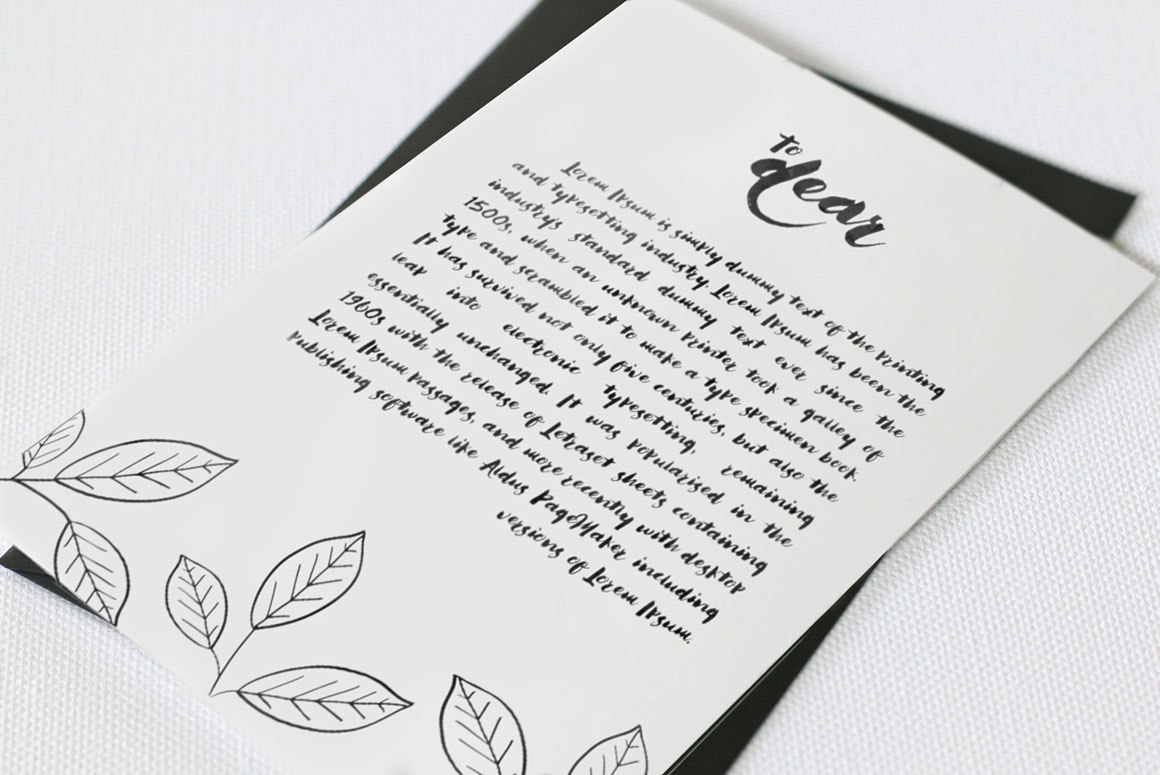 to
dear
Lorem Ipsum is simply dummy text of the printing
and typesetting industry. Lorem Ipsum has been the
industry's standard dummy text ever since the
1500s, when an unknown printer took a galley of
type and scrambled it to make a type specimen book.
It has survived not only five centuries, but also the
leap into electronic typesetting, remaining
essentially unchanged. It was popularised in the
1960s with the release of Letraset sheets containing
Lorem Ipsum passages, and more recently with desktop
publishing software like Aldus PageMaker including
versions of Lorem Ipsum.